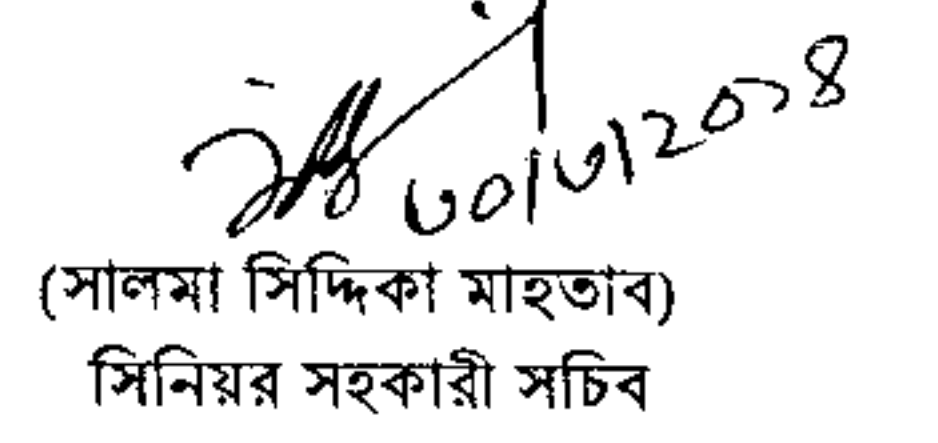 ৩০/৩/২০১৪
(সালমা সিদ্দিকা মাহতাব)
সিনিয়র সহকারী সচিব